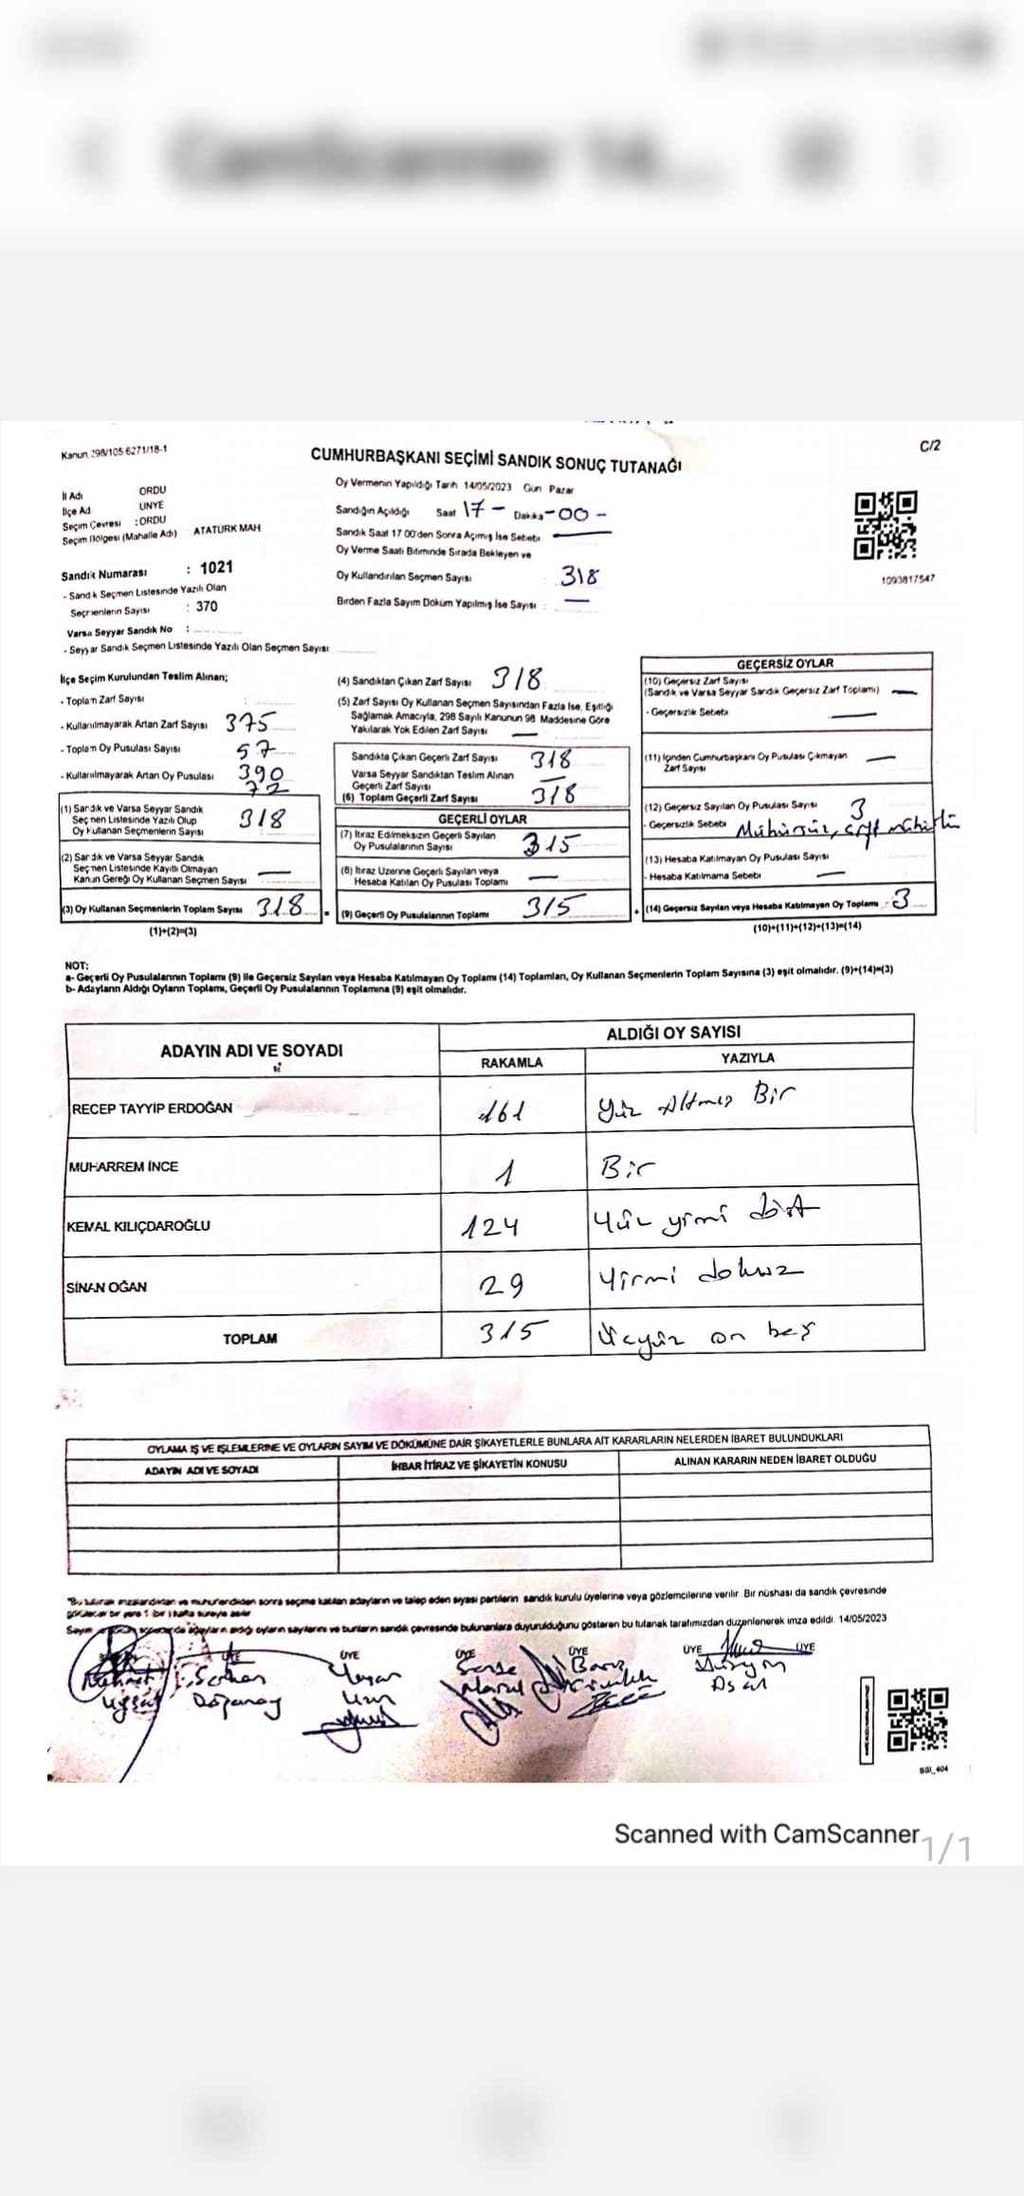 CamScanner 14...
Kanun 298/105 6271/18-1
C/2
CUMHURBAŞKANI SEÇİMİ SANDIK SONUÇ TUTANAĞI
İl Adı ORDU
İlçe Ad ÜNYE
Seçim Çevresi : ORDU
Seçim Bölgesi (Mahalle Adı) ATATÜRK MAH
Sandık Numarası : 1021
- Sandık Seçmen Listesinde Yazılı Olan
Seçmenlerin Sayısı : 370
Varsa Seyyar Sandık No :
- Seyyar Sandık Seçmen Listesinde Yazılı Olan Seçmen Sayısı
Oy Vermenin Yapıldığı Tarih 14/05/2023 Gün Pazar
Sandığın Açıldığı Saat 17 - Dakika - 00 -
Sandık Saat 17 00'den Sonra Açımış İse Sebebi —
Oy Verme Saati Bitiminde Sırada Bekleyen ve
Oy Kullandırılan Seçmen Sayısı 318
Birden Fazla Sayım Döküm Yapılmış İse Sayısı : —
1093817547
İlçe Seçim Kurulundan Teslim Alınan;
- Toplam Zarf Sayısı
- Kullanılmayarak Artan Zarf Sayısı 375
- Toplam Oy Pusulası Sayısı 57
- Kullanılmayarak Artan Oy Pusulası 390
72
(1) Sandık ve Varsa Seyyar Sandık
Seçmen Listesinde Yazılı Olup
Oy Kullanan Seçmenlerin Sayısı 318
(2) Sandık ve Varsa Seyyar Sandık
Seçmen Listesinde Kayıtlı Olmayan
Kanun Gereği Oy Kullanan Seçmen Sayısı —
(3) Oy Kullanan Seçmenlerin Toplam Sayısı 318
(1)+(2)=(3)
(4) Sandıktan Çıkan Zarf Sayısı 318
(5) Zarf Sayısı Oy Kullanan Seçmen Sayısından Fazla İse, Eşitliği
Sağlamak Amacıyla, 298 Sayılı Kanunun 98 Maddesine Göre
Yakılarak Yok Edilen Zarf Sayısı —
Sandıkta Çıkan Geçerli Zarf Sayısı 318
Varsa Seyyar Sandıktan Teslim Alınan
Geçerli Zarf Sayısı —
(6) Toplam Geçerli Zarf Sayısı 318
GEÇERLİ OYLAR
(7) İtiraz Edilmeksizin Geçerli Sayılan
Oy Pusulalarının Sayısı 315
(8) İtiraz Üzerine Geçerli Sayılan veya
Hesaba Katılan Oy Pusulası Toplamı —
(9) Geçerli Oy Pusulalarının Toplamı 315
GEÇERSİZ OYLAR
(10) Geçersiz Zarf Sayısı
(Sandık ve Varsa Seyyar Sandık Geçersiz Zarf Toplamı) —
- Geçersizlik Sebebi —
(11) İçinden Cumhurbaşkanı Oy Pusulası Çıkmayan
Zarf Sayısı —
(12) Geçersiz Sayılan Oy Pusulası Sayısı 3
- Geçersizlik Sebebi Mühürsüz, çift mühürlü
(13) Hesaba Katılmayan Oy Pusulası Sayısı
- Hesaba Katılmama Sebebi —
(14) Geçersiz Sayılan veya Hesaba Katılmayan Oy Toplamı : 3
(10)+(11)+(12)+(13)=(14)
NOT:
a- Geçerli Oy Pusulalarının Toplamı (9) ile Geçersiz Sayılan veya Hesaba Katılmayan Oy Toplamı (14) Toplamları, Oy Kullanan Seçmenlerin Toplam Sayısına (3) eşit olmalıdır. (9)+(14)=(3)
b- Adayların Aldığı Oyların Toplamı, Geçerli Oy Pusulalarının Toplamına (9) eşit olmalıdır.
ADAYIN ADI VE SOYADI
ALDIĞI OY SAYISI
RAKAMLA YAZIYLA
RECEP TAYYİP ERDOĞAN 161 Yüz Altmış Bir
MUHARREM İNCE 1 Bir
KEMAL KILIÇDAROĞLU 124 Yüz yirmi dört
SİNAN OĞAN 29 Yirmi dokuz
TOPLAM 315 Üçyüz on beş
OYLAMA İŞ VE İŞLEMLERİNE VE OYLARIN SAYIM VE DÖKÜMÜNE DAİR ŞİKAYETLERLE BUNLARA AİT KARARLARIN NELERDEN İBARET BULUNDUKLARI
ADAYIN ADI VE SOYADI İHBAR İTİRAZ VE ŞİKAYETİN KONUSU ALINAN KARARIN NEDEN İBARET OLDUĞU
sonra seçime katılan adayların ve talep eden siyasi partilerin sandık kurulu üyelerine veya gözlemcilerine verilir. Bir nüshası da sandık çevresinde
adayların aldığı oyların sayılarını ve bunların sandık çevresinde bulunanlara duyurulduğunu gösteren bu tutanak tarafımızdan düzenlenerek imza edildi. 14/05/2023
ÜYE ÜYE ÜYE ÜYE ÜYE ÜYE
Mehmet Serkan Barış
Uysal Doğanay
Scanned with CamScanner
1/1